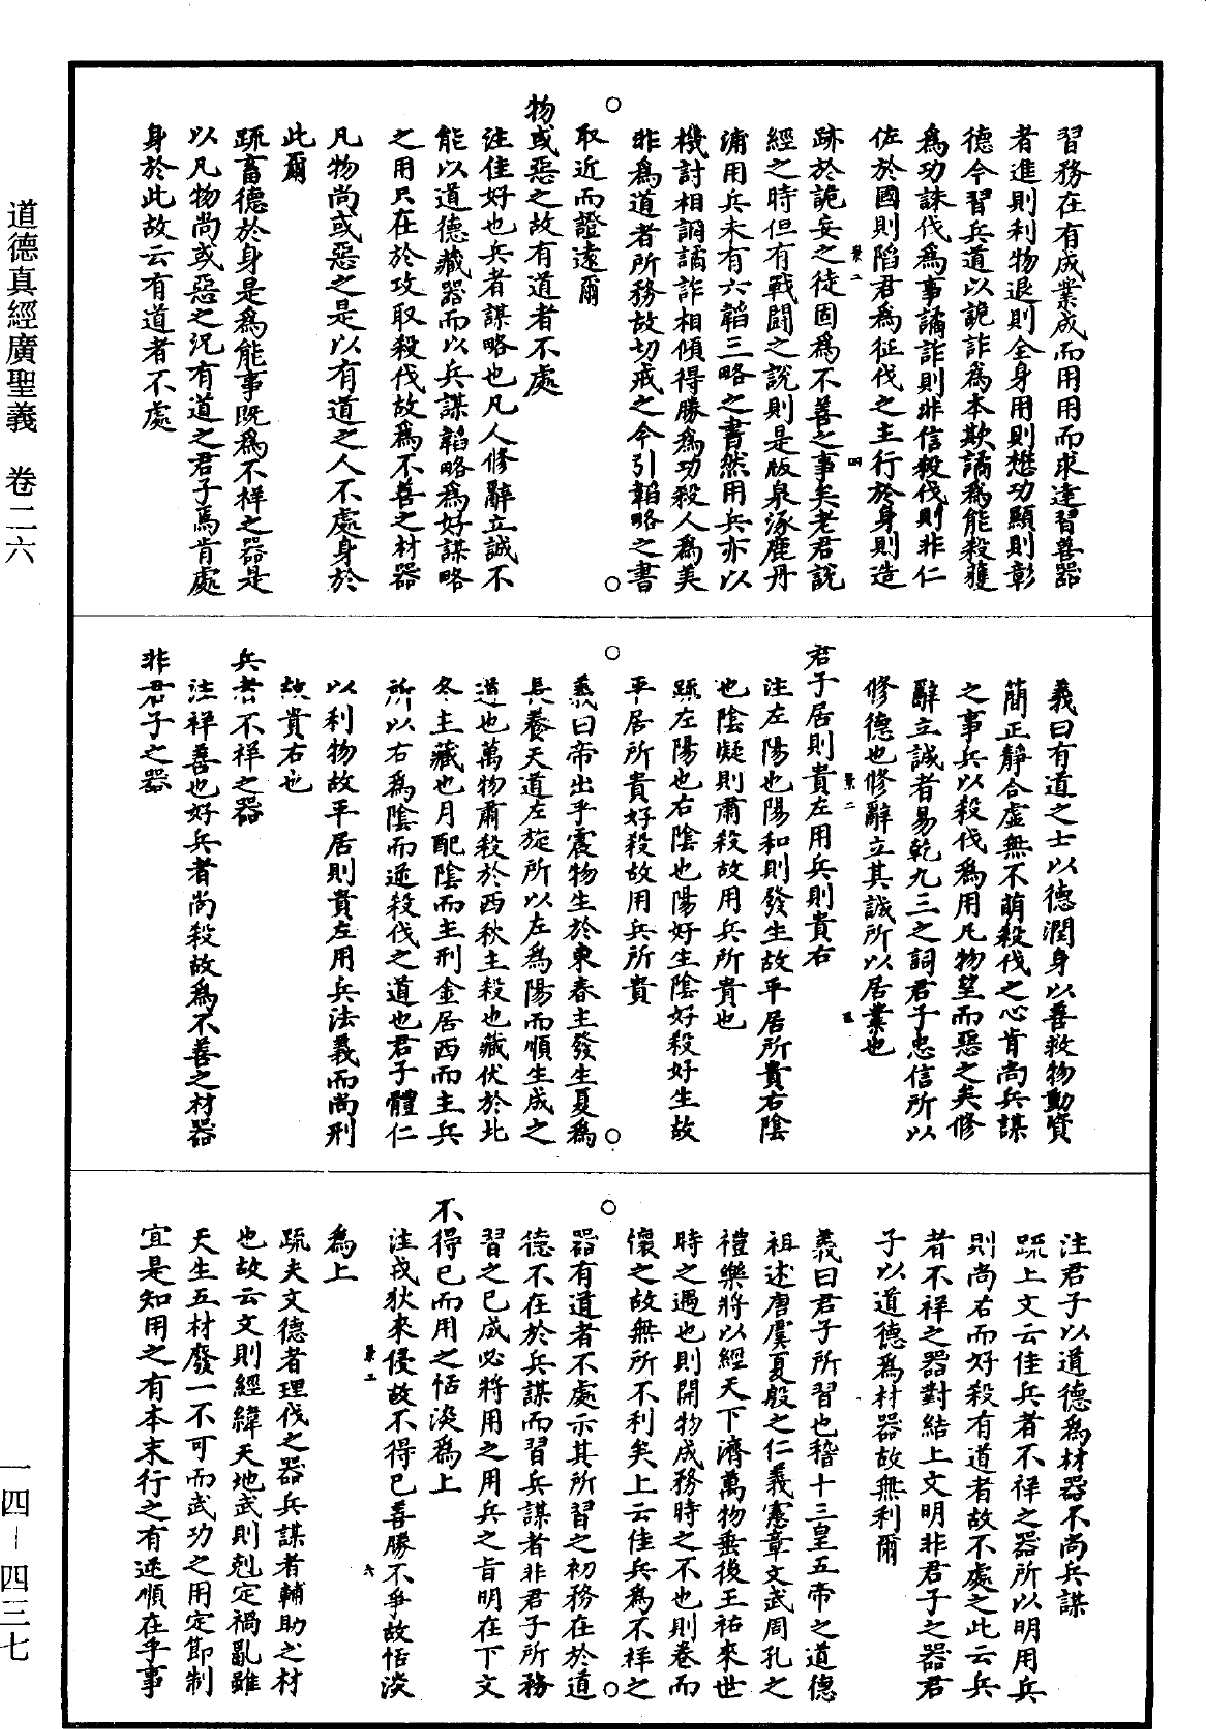 道德真經廣聖義　卷二六
習務在有成業成而用用而求達習善器
者進則利物退則全身用則懋功顯則彰
德今習兵道以詭詐為本欺譎為能殺獲
為功誅伐為事譎詐則非信殺伐則非仁
佐於國則陷君為征伐之主行於身則造
景二　四
跡於詭妄之徒固為不善之事矣老君說
經之時但有戰鬪之說則是版泉涿鹿丹
浦用兵未有六韜三略之書然用兵亦以
機討相詗譎詐相傾得勝為功殺人為美
非為道者所務故切戒之今引韜略之書
取近而證遠爾
物或惡之故有道者不處
注佳好也兵者謀略也凡人修辭立誠不
能以道德藏器而以兵謀韜略為好謀略
之用只在於攻取殺伐故為不善之材器
凡物尚或惡之是以有道之人不處身於
此爾
疏畜德於身是為能事既為不祥之器是
以凡物尚或惡之況有道之君子焉肯處
身於此故云有道者不處
義曰有道之士以德潤身以善救物動資
簡正靜合虛無不萌殺伐之心肯尚兵謀
之事兵以殺伐為用凡物望而惡之矣修
辭立誠者易乾九三之詞君子忠信所以
修德也修辭立其誠所以居業也
景二　五
君子居則貴左用兵則貴右
注左陽也陽和則發生故平居所貴右陰
也陰凝則肅殺故用兵所貴也
疏左陽也右陰也陽好生陰好殺好生故
平居所貴好殺故用兵所貴
義曰帝出乎震物生於東春主發生夏為
長養天道左旋所以左為陽而順生成之
道也萬物肅殺於西秋主殺也藏伏於北
冬主藏也月配陰而主刑金居西而主兵
所以右為陰而逆殺伐之道也君子體仁
以利物故平居則貴左用兵法義而尚刑
故貴右也
兵者不祥之器
注祥善也好兵者尚殺故為不善之材器
非君子之器
注君子以道德為材器不尚兵謀
疏上文云佳兵者不祥之器所以明用兵
則尚右而好殺有道者故不處之此云兵
者不祥之器對結上文明非君子之器君
子以道德為材器故無利爾
義曰君子所習也稽十三皇五帝之道德
祖述唐虞夏殷之仁義憲章文武周孔之
禮樂將以經天下濟萬物垂後王祐來世
時之遇也則開物成務時之不也則卷而
懷之故無所不利矣上云佳兵為不祥之
器有道者不處示其所習之初務在於道
德不在於兵謀而習兵謀者非君子所務
習之已成必將用之用兵之旨明在下文
不得已而用之恬淡為上
注戎狄來侵故不得已善勝不爭故恬淡
景二　六
為上
疏夫文德者理伐之器兵謀者輔助之材
也故云文則經緯天地武則剋定禍亂雖
天生五材廢一不可而武功之用定節制
宜是知用之有本末行之有逆順在乎事
一四-四三七